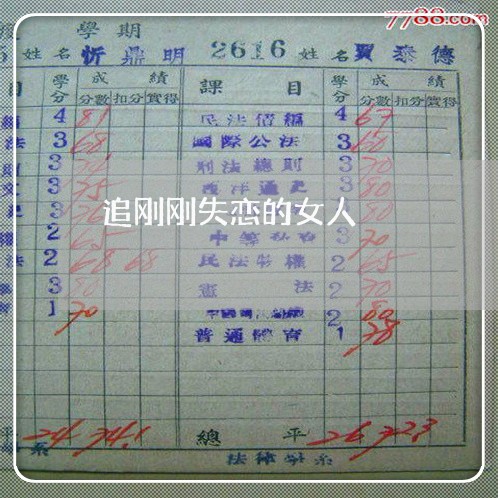 7788.com
學期
5 姓名 忻鼎明 2616 姓名 賈泰德
目 學分 成績 課目 學分 成績
分數 扣分 實得 分數 扣分 實得
4 81 民法債編 4 67
法 3 68 國際公法 3 60
則 3 刑法總則 3 70
文 3 75 西洋通史 3 80
史 3 3 80
追刚刚失恋的女人
權 2 65 3 70
法 2 68 68 民法物權 2 65
3 80 憲法 2 70
育 1 70 2 80
普通體育 1 78
平 24 74.1 總平 26 72.3
系 法律學系